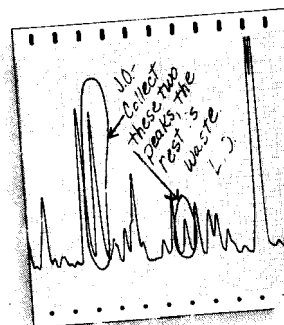 J.O.-
Collect
these two
peaks, the
rest is
waste
L.J.